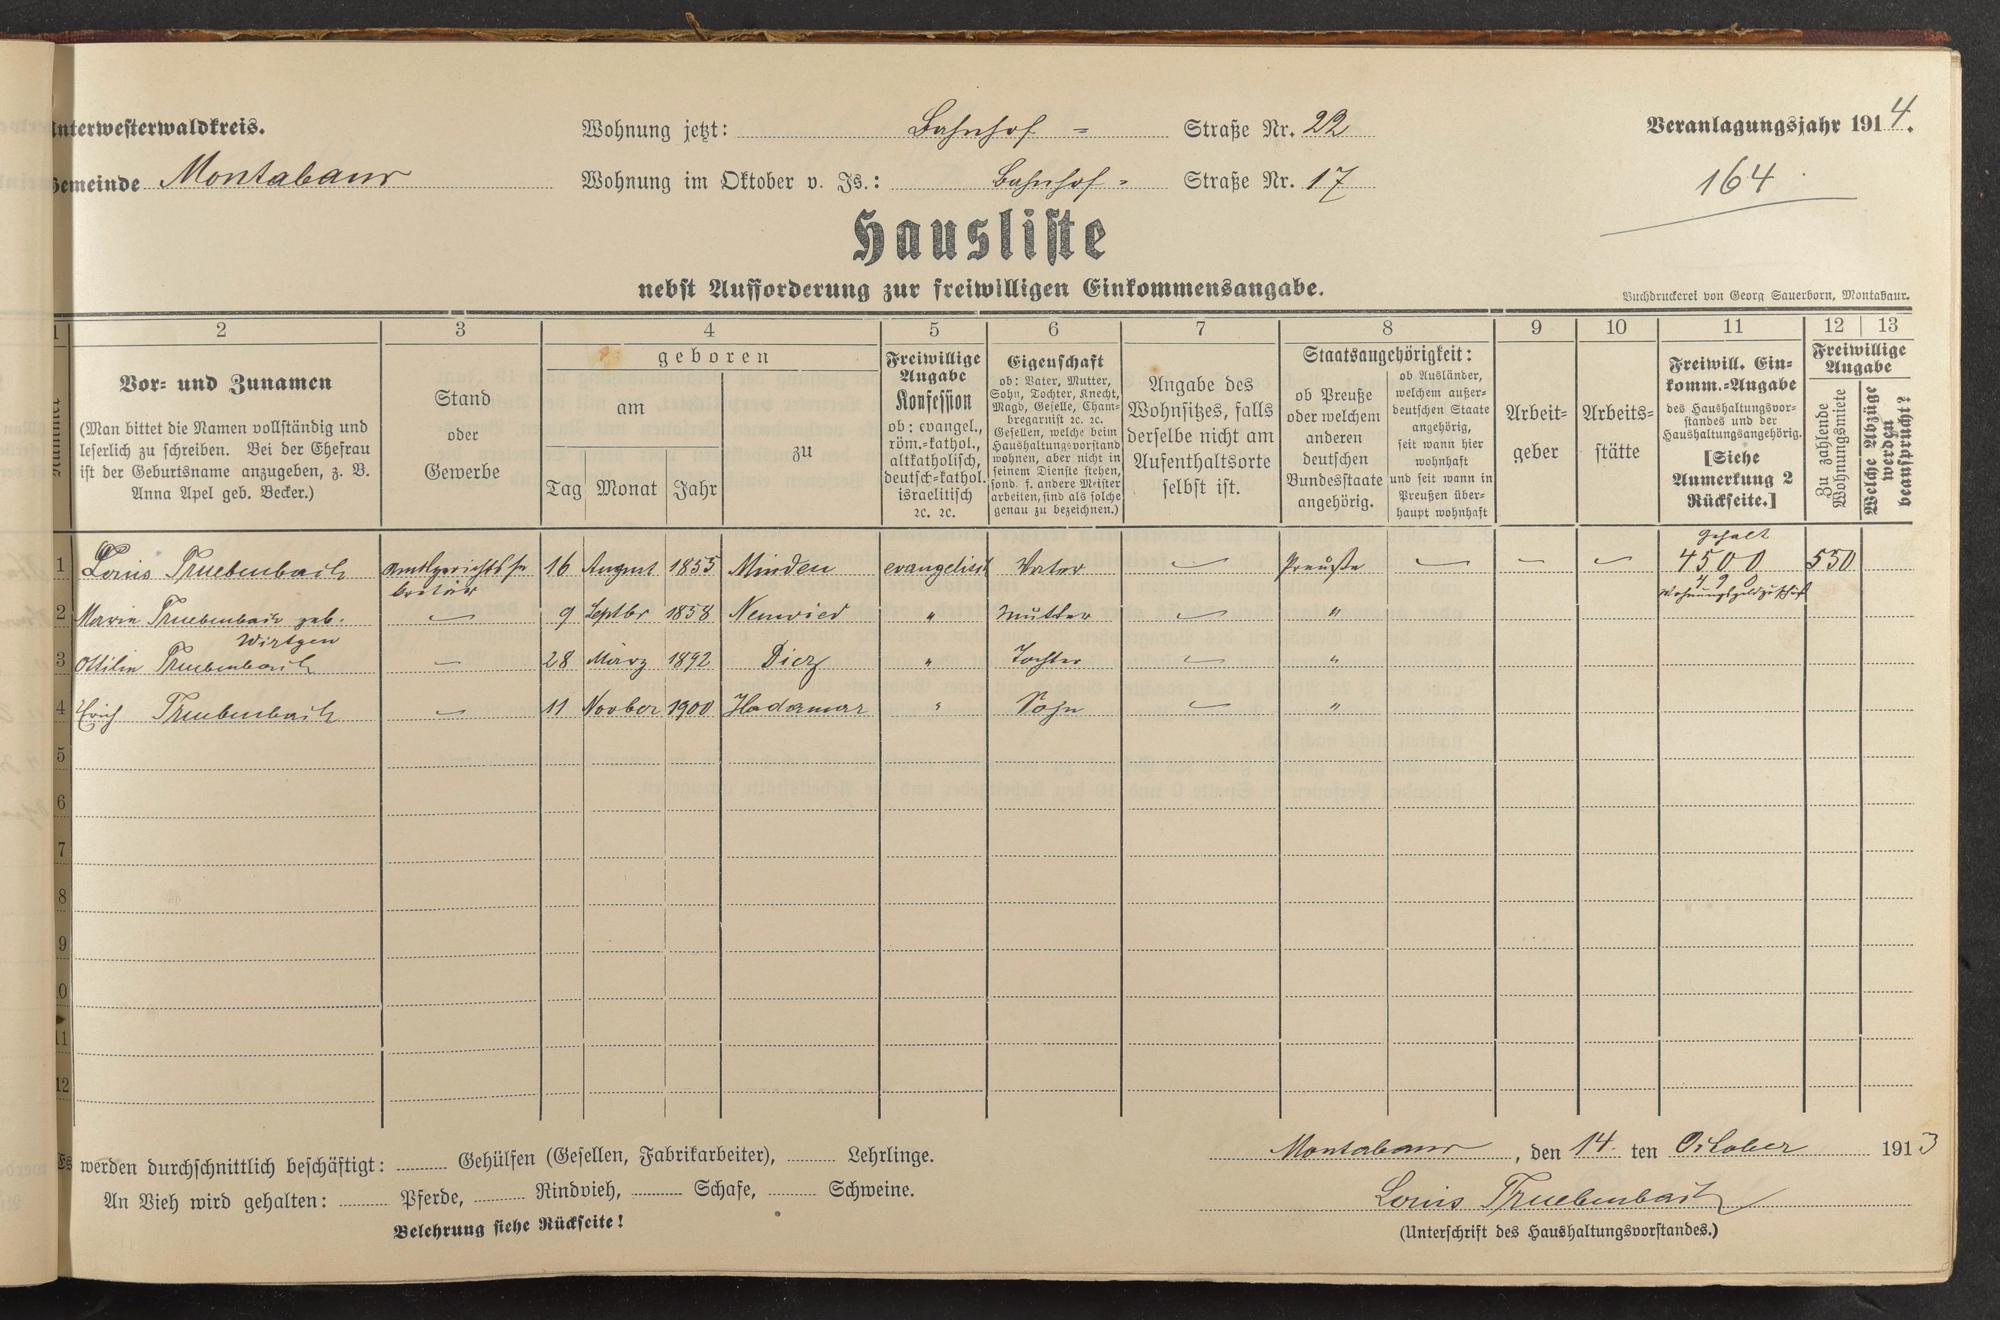 Unterwesterwaldkreis.
Wohnung jetzt: Bahnhof = Straße Nr. 22
Veranlagungsjahr 1914.
Gemeinde Montabaur
Wohnung im Oktober v. Js.: Bahnhof = Straße Nr. 17
164
Hausliste
nebst Aufforderung zur freiwilligen Einkommensangabe.
Buchdruckerei von Georg Sauerborn, Montabaur.
1 2 3 4 5 6 7 8 9 10 11 12 13
Nummer
Vor- und Zunamen
(Man bittet die Namen vollständig und
leserlich zu schreiben. Bei der Ehefrau
ist der Geburtsname anzugeben, z. B.
Anna Apel geb. Becker.)
Stand
oder
Gewerbe
geboren
am
Tag Monat Jahr
zu
Freiwillige
Angabe
Konfession
ob: evangel.,
röm.-kathol.,
altkatholisch,
deutsch-kathol.
israelitisch
ꝛc. ꝛc.
Eigenschaft
ob: Vater, Mutter,
Sohn, Tochter, Knecht,
Magd, Geselle, Cham-
bregarnist ꝛc. ꝛc.
Gesellen, welche beim
Haushaltungsvorstand
wohnen, aber nicht in
seinem Dienste stehen,
sond. f. andere Meister
arbeiten, sind als solche
genau zu bezeichnen.)
Angabe des
Wohnsitzes, falls
derselbe nicht am
Aufenthaltsorte
selbst ist.
Staatsangehörigkeit:
ob Preuße
oder welchem
anderen
deutschen
Bundesstaate
angehörig.
ob Ausländer,
welchem außer-
deutschen Staate
angehörig,
seit wann hier
wohnhaft
und seit wann in
Preußen über-
haupt wohnhaft
Arbeit-
geber
Arbeits-
stätte
Freiwill. Ein-
komm.-Angabe
des Haushaltungsvor-
standes und der
Haushaltungsangehörig.
[Siehe
Anmerkung 2
Rückseite.]
Freiwillige
Angabe
Zu zahlende
Wohnungsmiete
Welche Abzüge
werden
beansprucht?
Gehalt
1 Louis Truebenbach Amtsgerichtsse 16 August 1855 Minden evangelisch Vater — Preuße — — — 4500 550
kretär 490
Wohnungsgeldzuschuß
2 Marie Truebenbach geb. — 9 Septbr 1858 Neuwied " Mutter — "
Wirtgen
3 Ottilie Truebenbach — 28 März 1892 Diez " Tochter — "
4 Erich Truebenbach — 11 Novber 1900 Hadamar " Sohn — "
5
6
7
8
9
10
11
12
Es werden durchschnittlich beschäftigt: Gehülfen (Gesellen, Fabrikarbeiter), Lehrlinge.
An Vieh wird gehalten: Pferde, Rindvieh, Schafe, Schweine.
Belehrung siehe Rückseite!
Montabaur, den 14. ten October 1913
Louis Truebenbach
(Unterschrift des Haushaltungsvorstandes.)